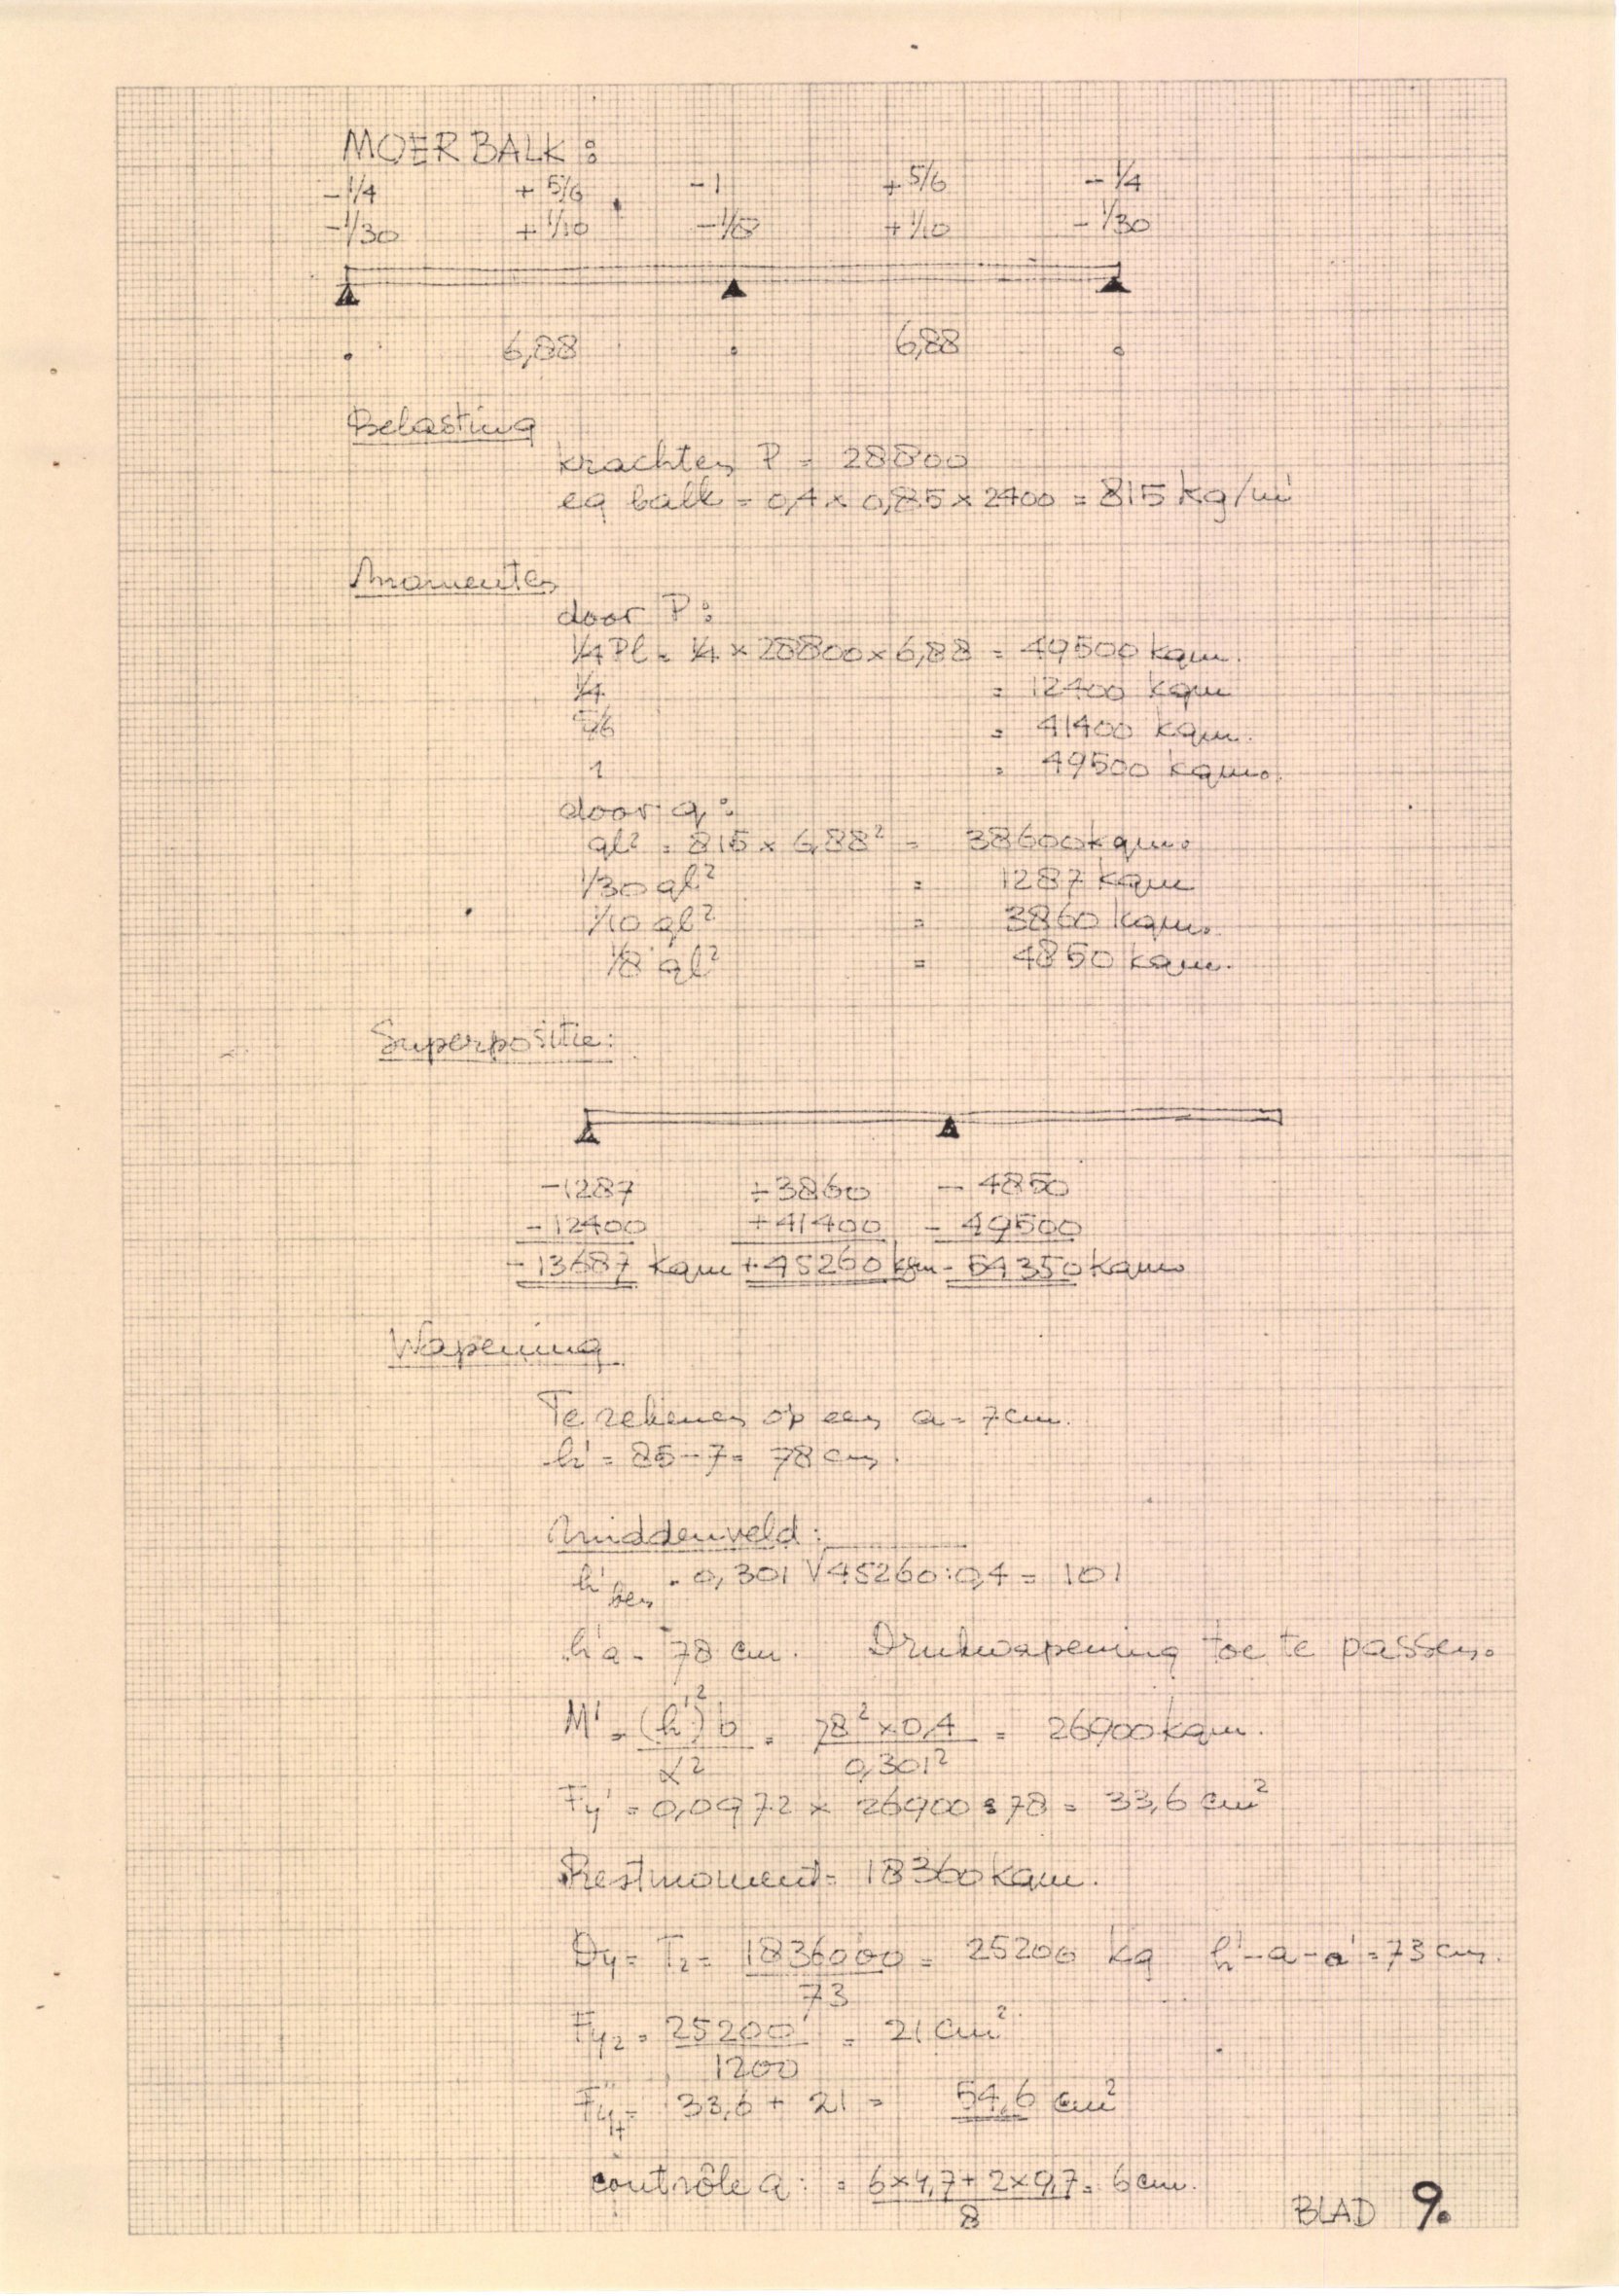 MOERBALK:
-1/4 +5/6 -1 +5/6 -1/4
-1/30 +1/10 -1/8 +1/10 -1/30
6,88 6,88
Belasting
krachten P = 28800
eg balk = 0,4 x 0,85 x 2400 = 815 kg/m'
Momenten
door P:
1/4 Pl = 1/4 x 28800 x 6,88 = 49500 kgm.
1/4 = 12400 kgm
5/6 = 41400 kgm.
1 = 49500 kgm.
door q:
ql² = 815 x 6,88² = 38600 kgm.
1/30 ql² = 1287 kgm
1/10 ql² = 3860 kgm.
1/8 ql² = 4850 kgm.
Superpositie:
-1287 +3860 - 4850
-12400 +41400 - 49500
-13687 kgm +45260 kgm - 54350 kgm
Wapening
Te rekenen op een a = 7 cm.
h' = 85-7 = 78 cm.
Middenveld:
h'ben = 0,301 √45260:0,4 = 101
h'a = 78 cm. Drukwapening toe te passen.
M' = (h')²b / α² = 78² x 0,4 / 0,301² = 26900 kgm.
Fy' = 0,0972 x 26900 : 78 = 33,6 cm²
Restmoment = 18360 kgm.
Dy = T2 = 1836000 / 73 = 25200 kg h'-a-a' = 73 cm.
Fy2 = 25200 / 1200 = 21 cm²
Fy'' = 33,6 + 21 = 54,6 cm²
contrôle a: = 6x4,7 + 2x9,7 / 8 = 6 cm.
BLAD 9.